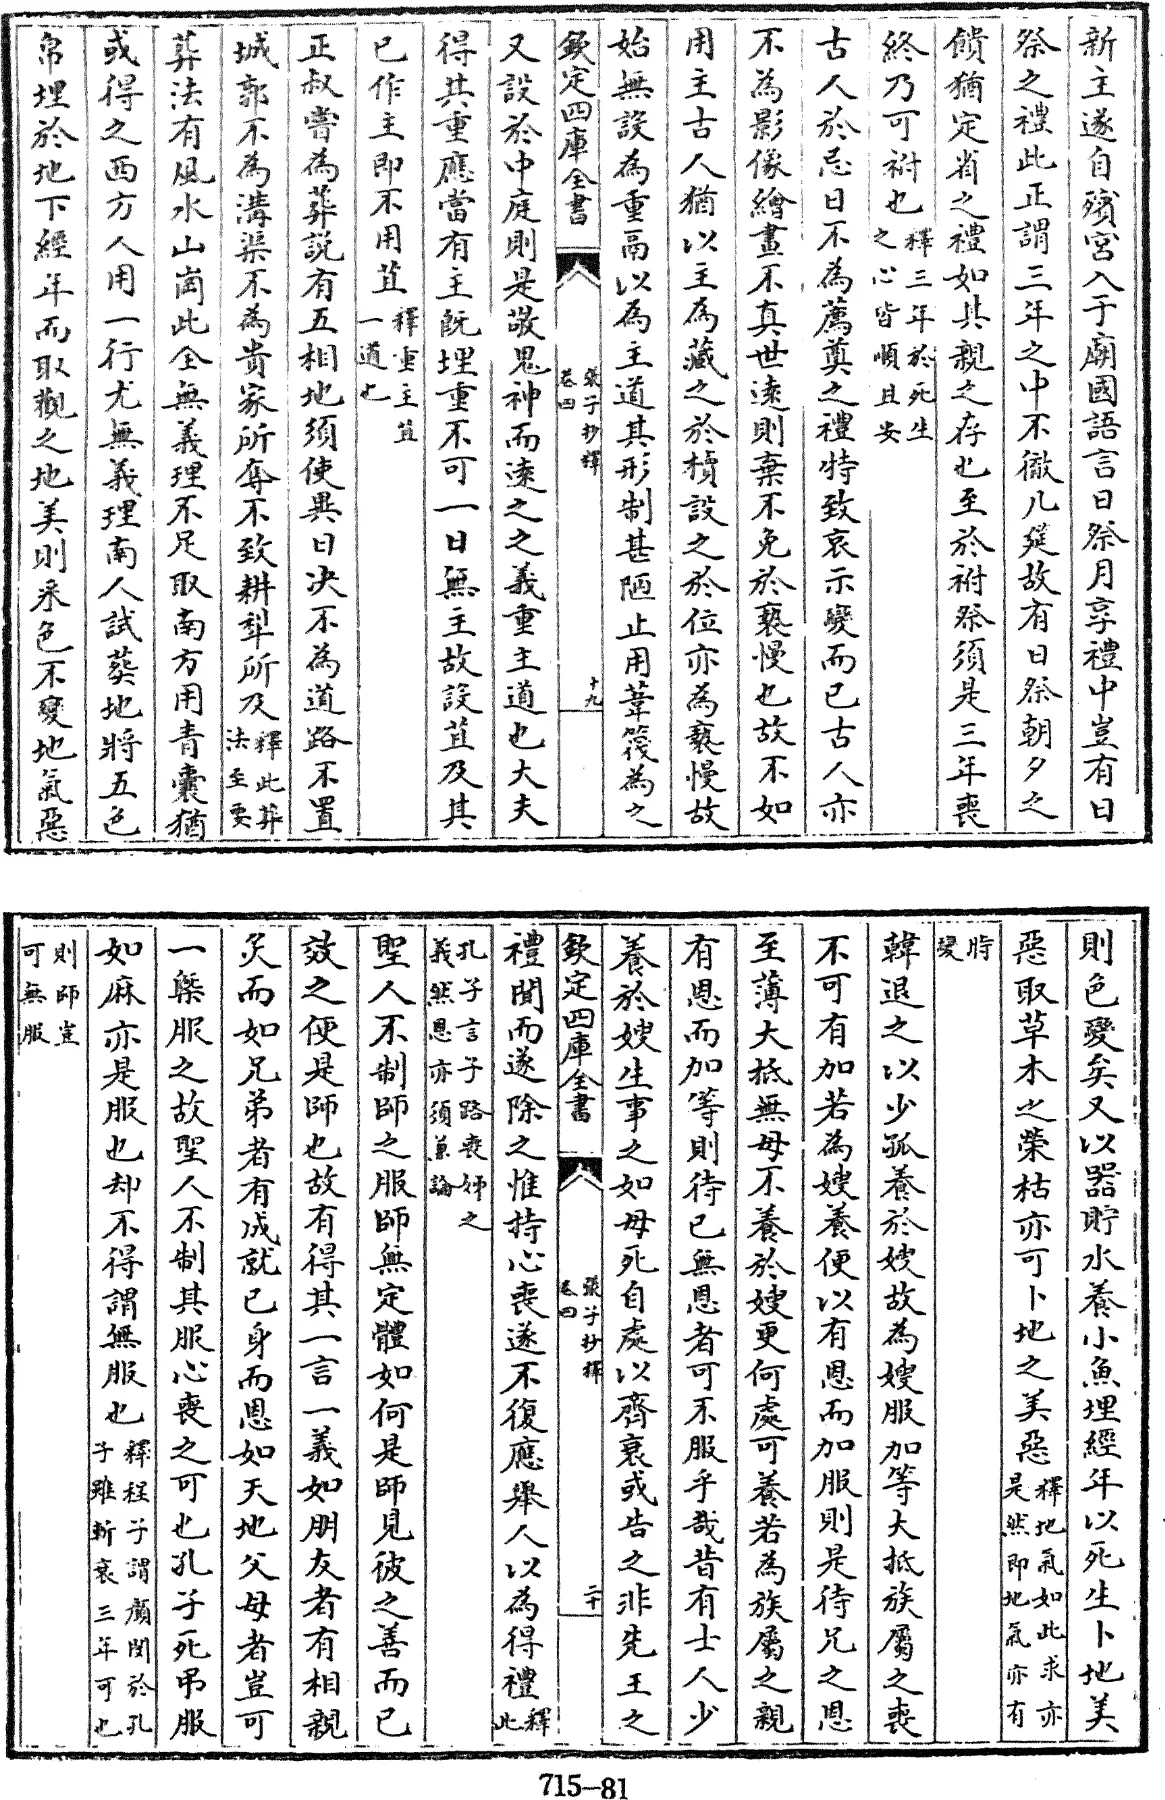 新主遂自殯宮入于廟國語言日祭月享禮中豈有日
祭之禮此正謂三年之中不徹几筵故有日祭朝夕之
饋猶定省之禮如其親之存也至於祔祭須是三年喪
終乃可祔也釋三年於死生之心皆順且安
古人於忌日不為薦奠之禮特致哀示變而已古人亦
不為影像繪畫不真世逺則棄不免於褻慢也故不如
用主古人猶以主為藏之於櫝設之於位亦為褻慢故
始無設為重鬲以為主道其形制甚陋止用葦篾為之
欽定四庫全書
張子抄釋
卷四
十九
又設於中庭則是敬鬼神而逺之之義重主道也大夫
得其重應當有主既埋重不可一日無主故設苴及其
已作主即不用苴釋重主苴一道也
正叔嘗為葬說有五相地須使異日決不為道路不置
城郭不為溝渠不為貴家所奪不致耕犁所及釋此葬法至要
葬法有風水山崗此全無義理不足取南方用青囊猶
或得之西方人用一行尤無義理南人試葬地將五色
帛埋於地下經年而取觀之地美則采色不變地氣惡
則色變矣又以器貯水養小魚埋經年以死生卜地美
惡取草木之榮枯亦可卜地之美惡釋地氣如此求亦是然即地氣亦有
時變
韓退之以少孤養於嫂故為嫂服加等大抵族屬之喪
不可有加若為嫂養便以有恩而加服則是待兄之恩
至薄大抵無母不養於嫂更何處可養若為族屬之親
有恩而加等則待已無恩者可不服乎哉昔有士人少
養於嫂生事之如母死自處以齊衰或告之非先王之
欽定四庫全書
張子抄釋
卷四
二十
禮聞而遂除之惟持心喪遂不復應舉人以為得禮釋此
孔子言子路喪姊之義然恩亦須兼論
聖人不制師之服師無定體如何是師見彼之善而已
效之便是師也故有得其一言一義如朋友者有相親
炙而如兄弟者有成就已身而恩如天地父母者豈可
一槩服之故聖人不制其服心喪之可也孔子死弔服
如麻亦是服也却不得謂無服也釋程子謂顏閔於孔子雖斬衰三年可也
則師豈可無服
715-81